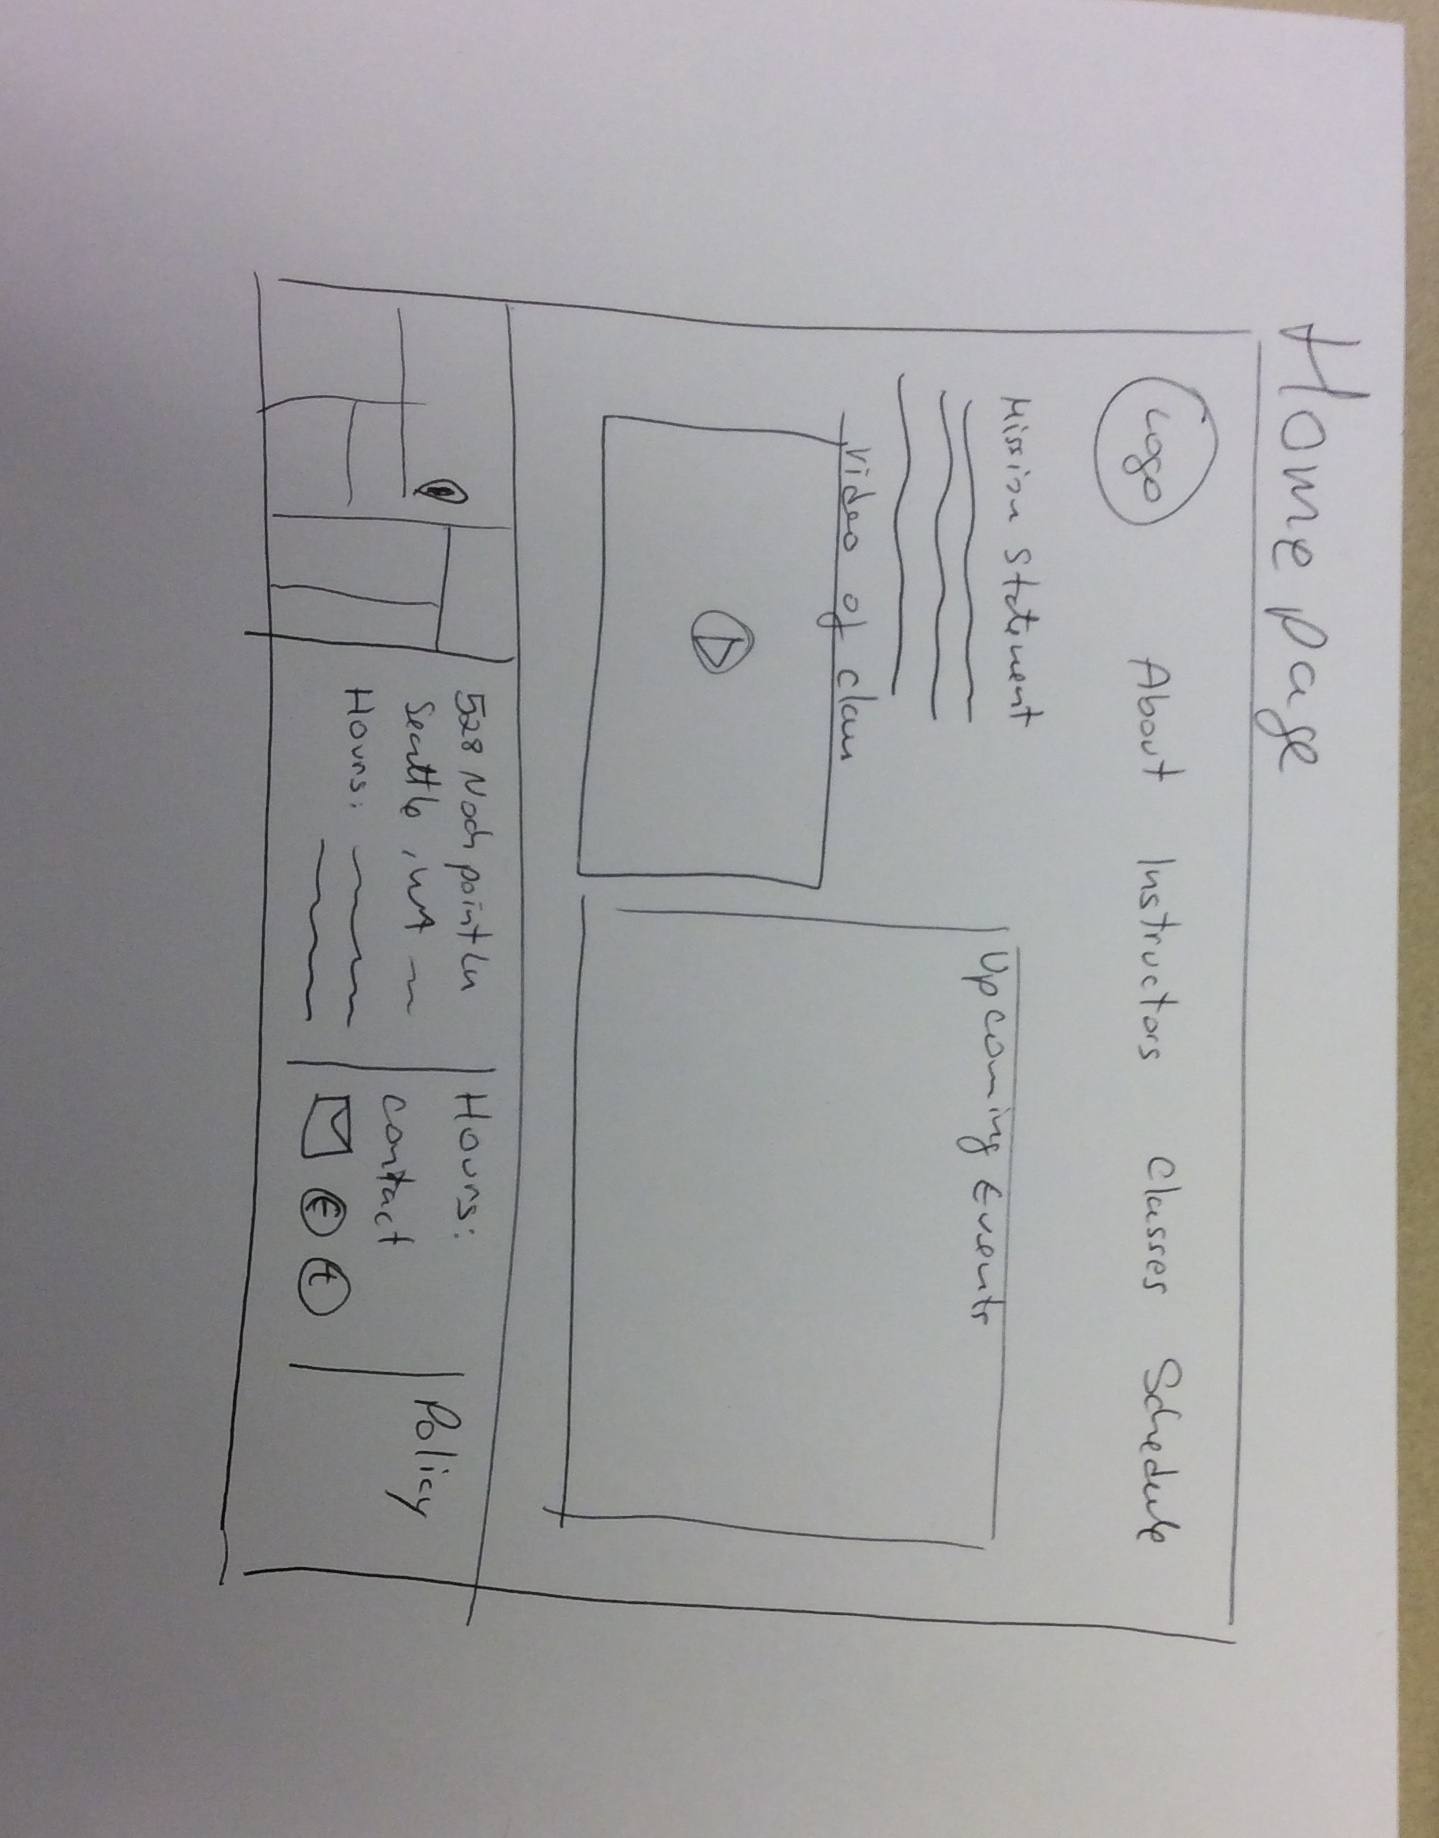 Home page
Logo About Instructors Classes Schedule
Mission Statement
Upcoming Events
Video of class
528 point Ln
Seattle, WA
Hours:
Hours:
contact
f t
Policy